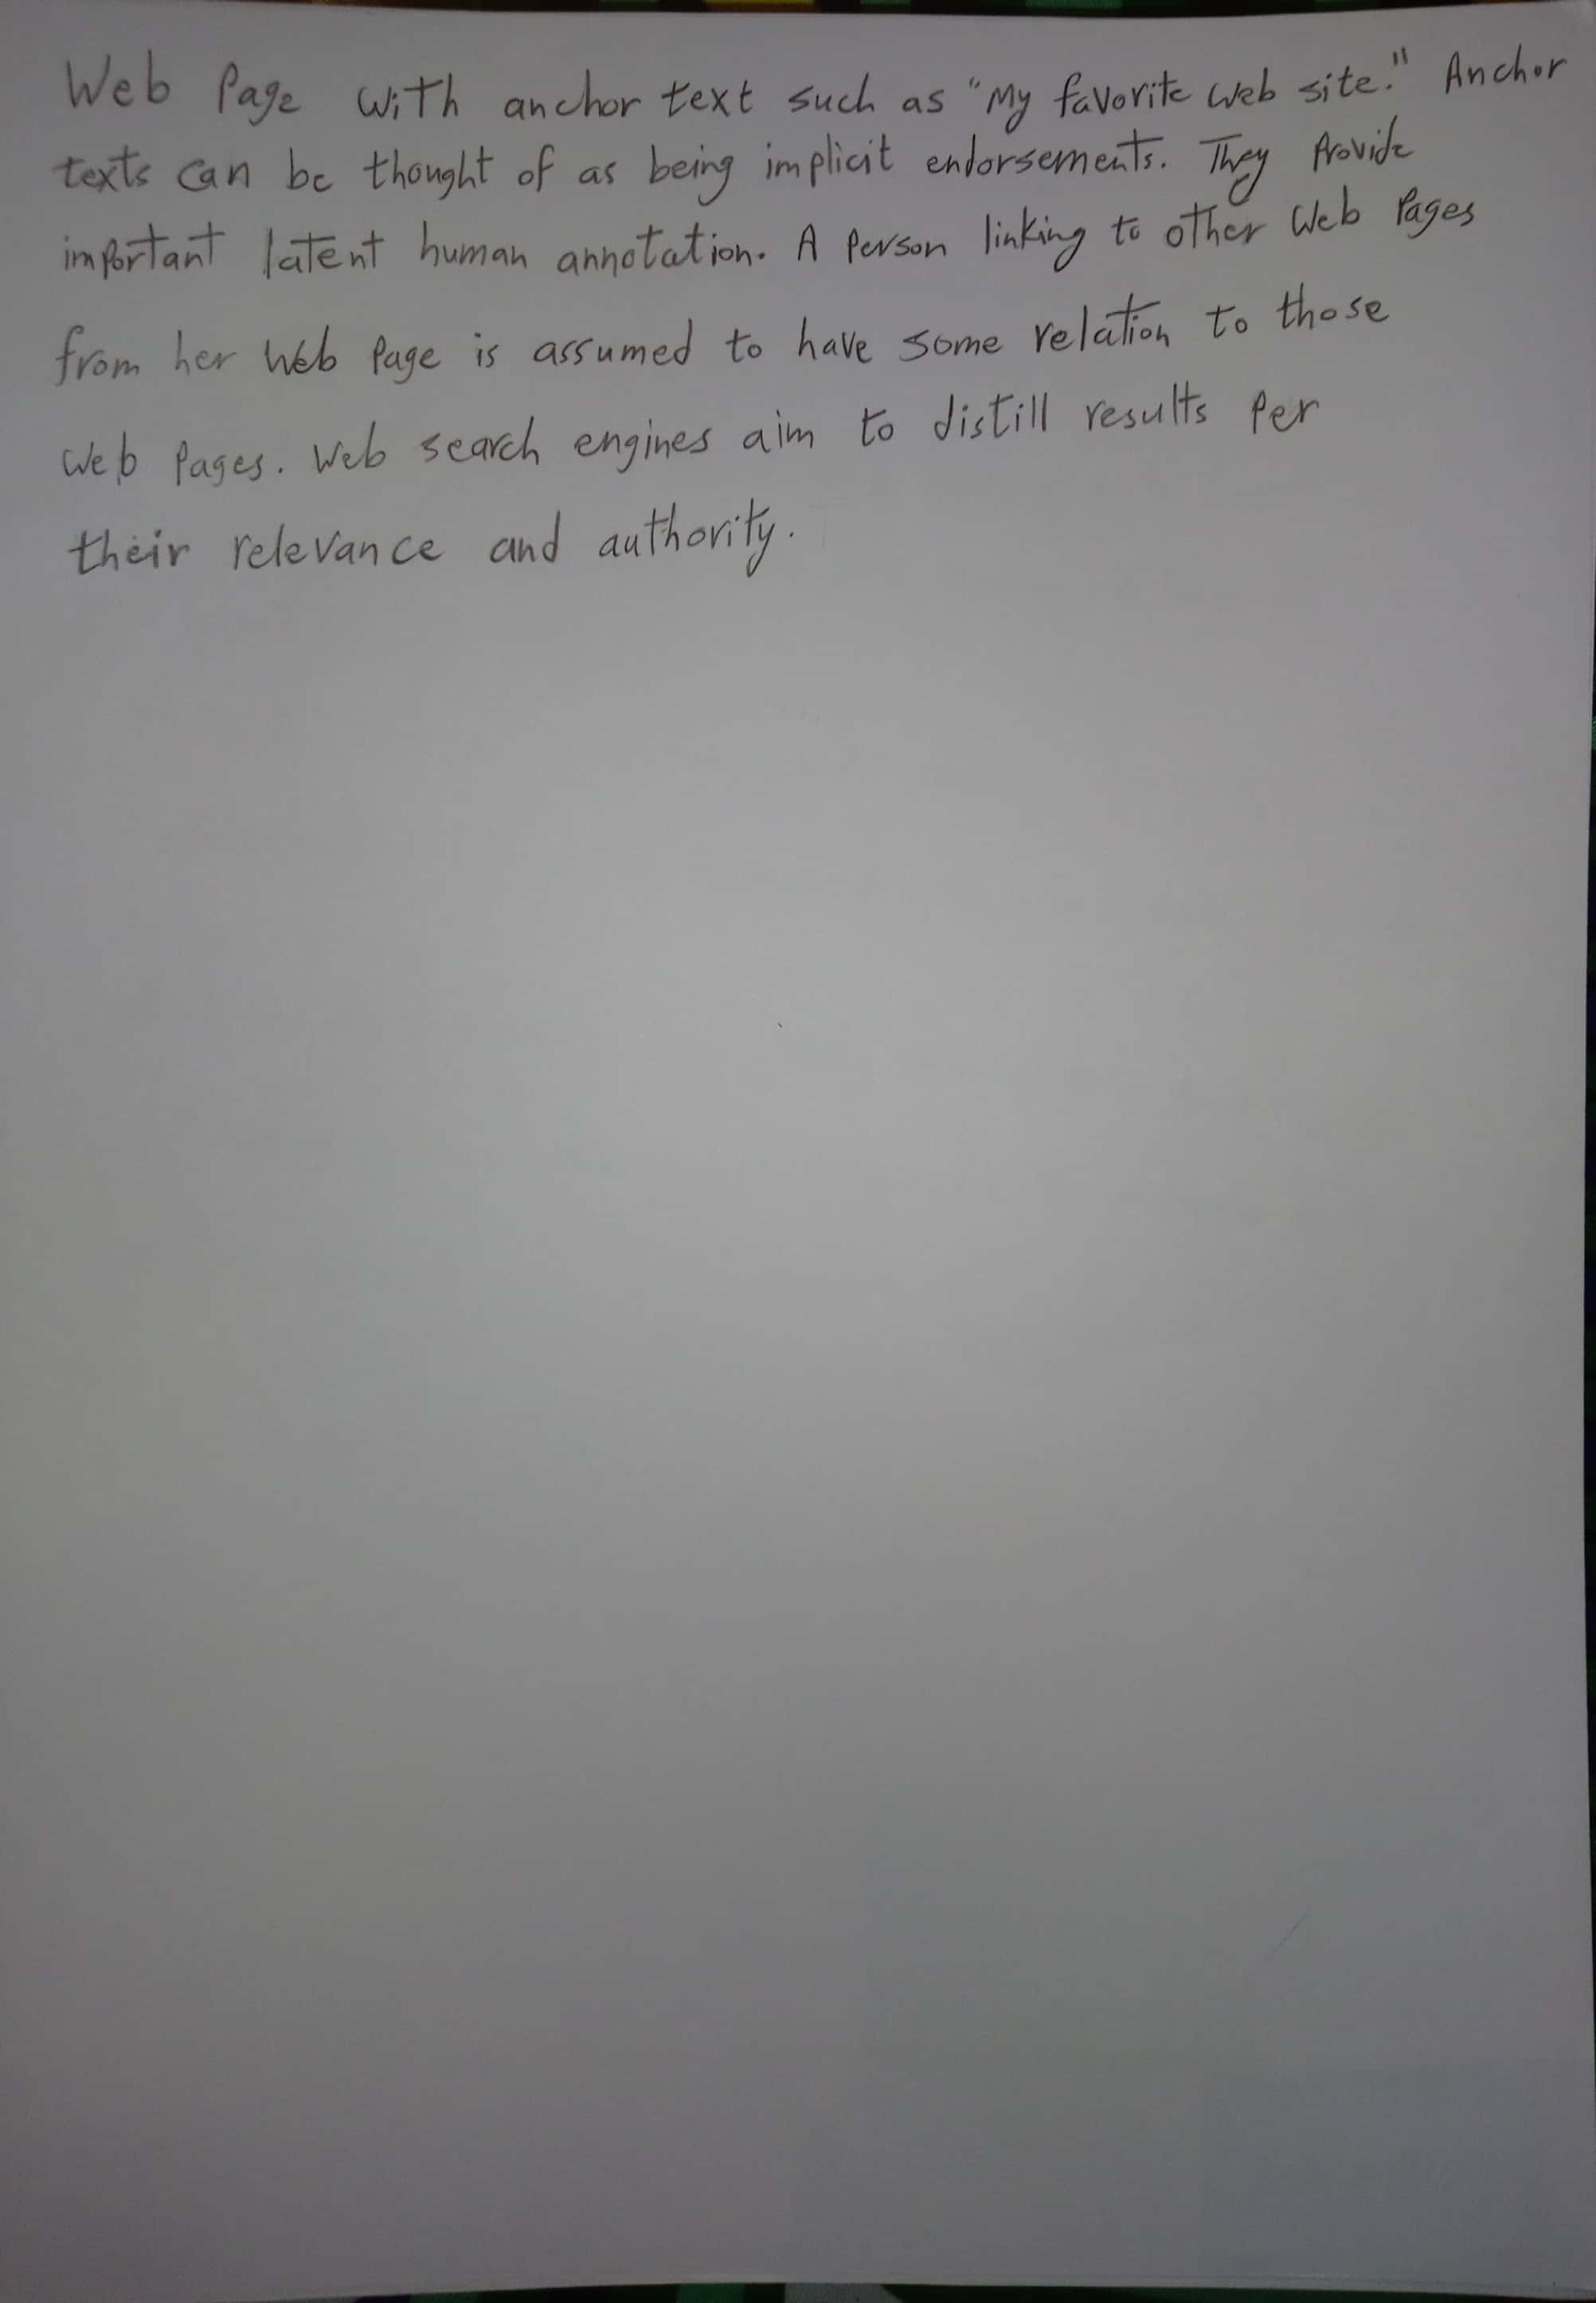 Web Page with anchor text such as "My favorite web site." Anchor
texts can be thought of as being implicit endorsements. They Provide
important latent human annotation. A Person linking to other Web Pages
from her Web Page is assumed to have some relation to those
Web Pages. Web search engines aim to distill results Per
their relevance and authority.